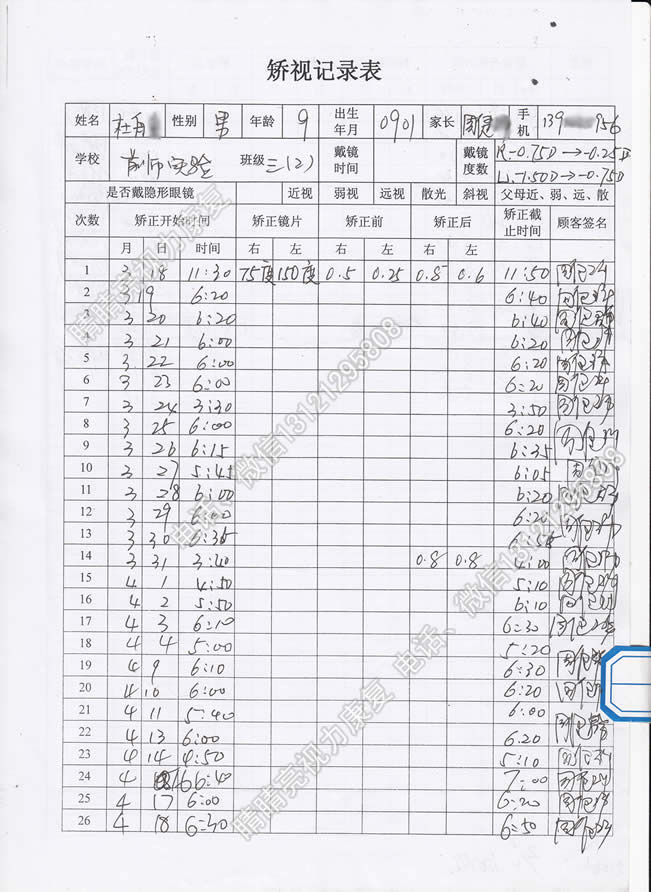 矫视记录表
姓名 杜 性别 男 年龄 9 出生年月 0901 家长 手机 139 956
学校 实验 班级 三(2) 戴镜时间 戴镜度数 R-0.75D→-0.25D
L-1.50D→-0.75D
是否戴隐形眼镜 近视 弱视 远视 散光 斜视 父母近、弱、远、散
次数 矫正开始时间 矫正镜片 矫正前 矫正后 矫正截止时间 顾客签名
月 日 时间 右 左 右 左 右 左
1 3 18 11:30 75度 150度 0.5 0.25 0.8 0.6 11:50
2 3 19 6:20 6:40
3 3 20 6:20 6:40
4 3 21 6:00 6:20
5 3 22 6:00 6:20
6 3 23 6:00 6:20
7 3 24 3:30 3:50
8 3 25 6:00 6:20
9 3 26 6:15 6:35
10 3 27 5:45 6:05
11 3 28 6:00 6:20
12 3 29 6:00 6:20
13 3 30 6:35
14 3 31 3:40 0.8 0.8 4:00
15 4 1 4:50 5:10
16 4 2 5:50 6:10
17 4 3 6:10 6:30
18 4 4 5:00 5:20
19 4 9 6:10 6:30
20 4 10 6:00 6:20
21 4 11 5:40 6:00
22 4 13 6:00 6.20
23 4 14 4:50 5:10
24 4 16 6:40 7:00
25 4 17 6:00 6:20
26 4 18 6:30 6:50
睛睛亮视力康复 电话、微信13121295808
睛睛亮视力康复 电话、微信13121295808